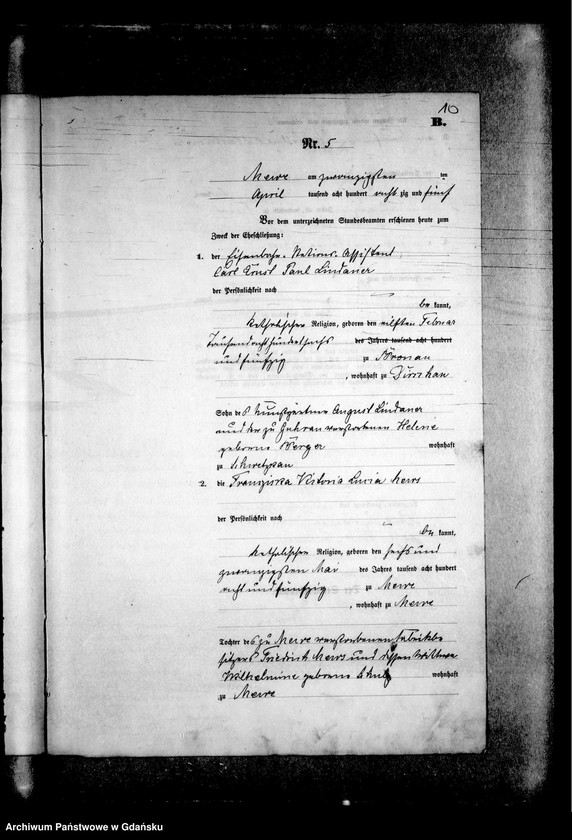 10
B.
Nr. 5
Mewe am zwanzigsten ten
April tausend acht hundert acht zig und fünf
Vor dem unterzeichneten Standesbeamten erschienen heute zum
Zweck der Eheschließung:
1. der Eisenbahn-Stations-Assistent
Carl Ernst Paul Lindauer
der Persönlichkeit nach
be kannt,
katholischer Religion, geboren den elften Februar
Tausendachthundertsechs des Jahres tausend acht hundert
undfünfzig zu
, wohnhaft zu Dirschau
Sohn des Kunstgärtners August Lindauer
und der zu verstorbenen Helene
geborene Berger wohnhaft
zu
2. die Franziska Victoria Lucia Mews
der Persönlichkeit nach
be kannt,
katholischer Religion, geboren den sechs und
zwanzigsten Mai des Jahres tausend acht hundert
acht und fünfzig zu Mewe
, wohnhaft zu Mewe
Tochter des zu Mewe verstorbenen Fabrikbe
sitzers Friedrich Mews und dessen Wittwe
Wilhelmine geborene wohnhaft
zu Mewe
Archiwum Państwowe w Gdańsku